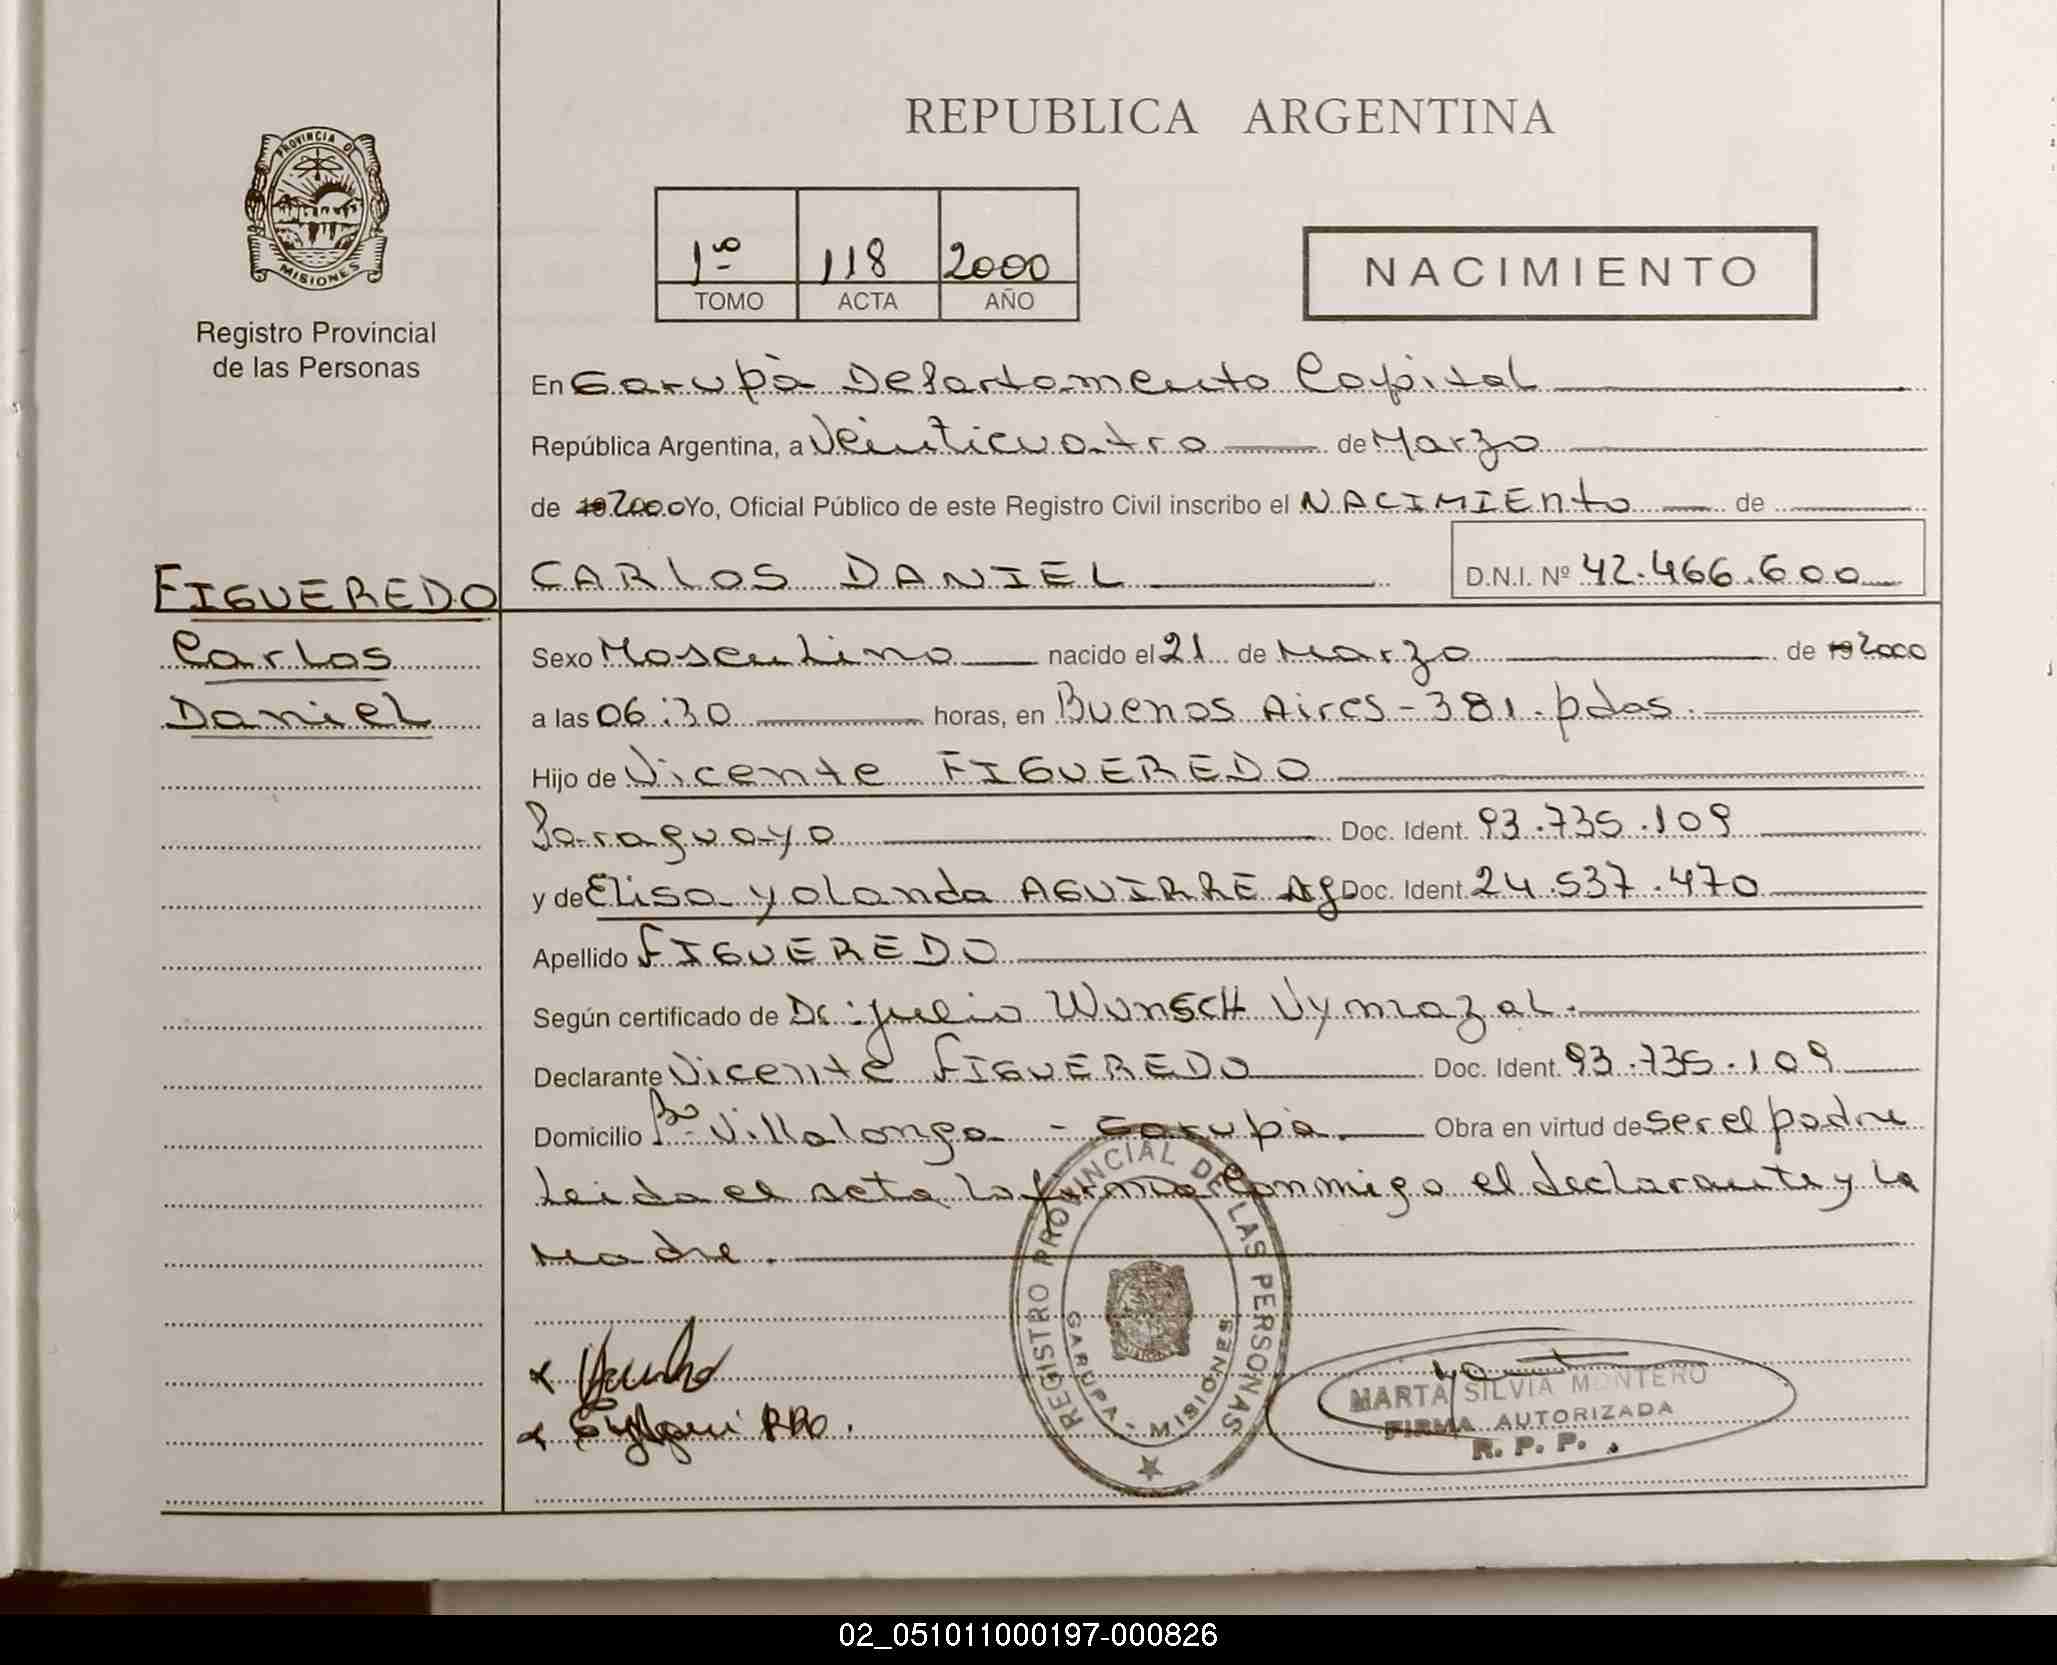 REPUBLICA ARGENTINA
PROVINCIA DE
MISIONES
Registro Provincial
de las Personas
1º 118 2000
TOMO ACTA AÑO
NACIMIENTO
En Garupà Departamento Capital
República Argentina, a Veinticuatro de Marzo
de 19 2000 Yo, Oficial Público de este Registro Civil inscribo el NACIMIENTO de
FIGUEREDO
Carlos
Daniel
CARLOS DANIEL D.N.I. Nº 42.466.600
Sexo Masculino nacido el 21 de Marzo de 19 2000
a las 06:30 horas, en Buenos Aires - 381. pdas.
Hijo de Vicente FIGUEREDO
Paraguayo Doc. Ident. 93.735.109
y de Elisa Yolanda AGUIRRE Arg Doc. Ident. 24.537.470
Apellido FIGUEREDO
Según certificado de Dr: Julio WUNSCH Vymazal.
Declarante Vicente FIGUEREDO Doc. Ident. 93.735.109
Domicilio Bº Villalonga - Garupà Obra en virtud de ser el padre
Leida el acta la firma conmigo el declarante y la
Madre.
REGISTRO PROVINCIAL DE LAS PERSONAS
GARUPA - MISIONES
MARTA SILVIA MONTERO
FIRMA AUTORIZADA
R. P. P.
02_051011000197-000826